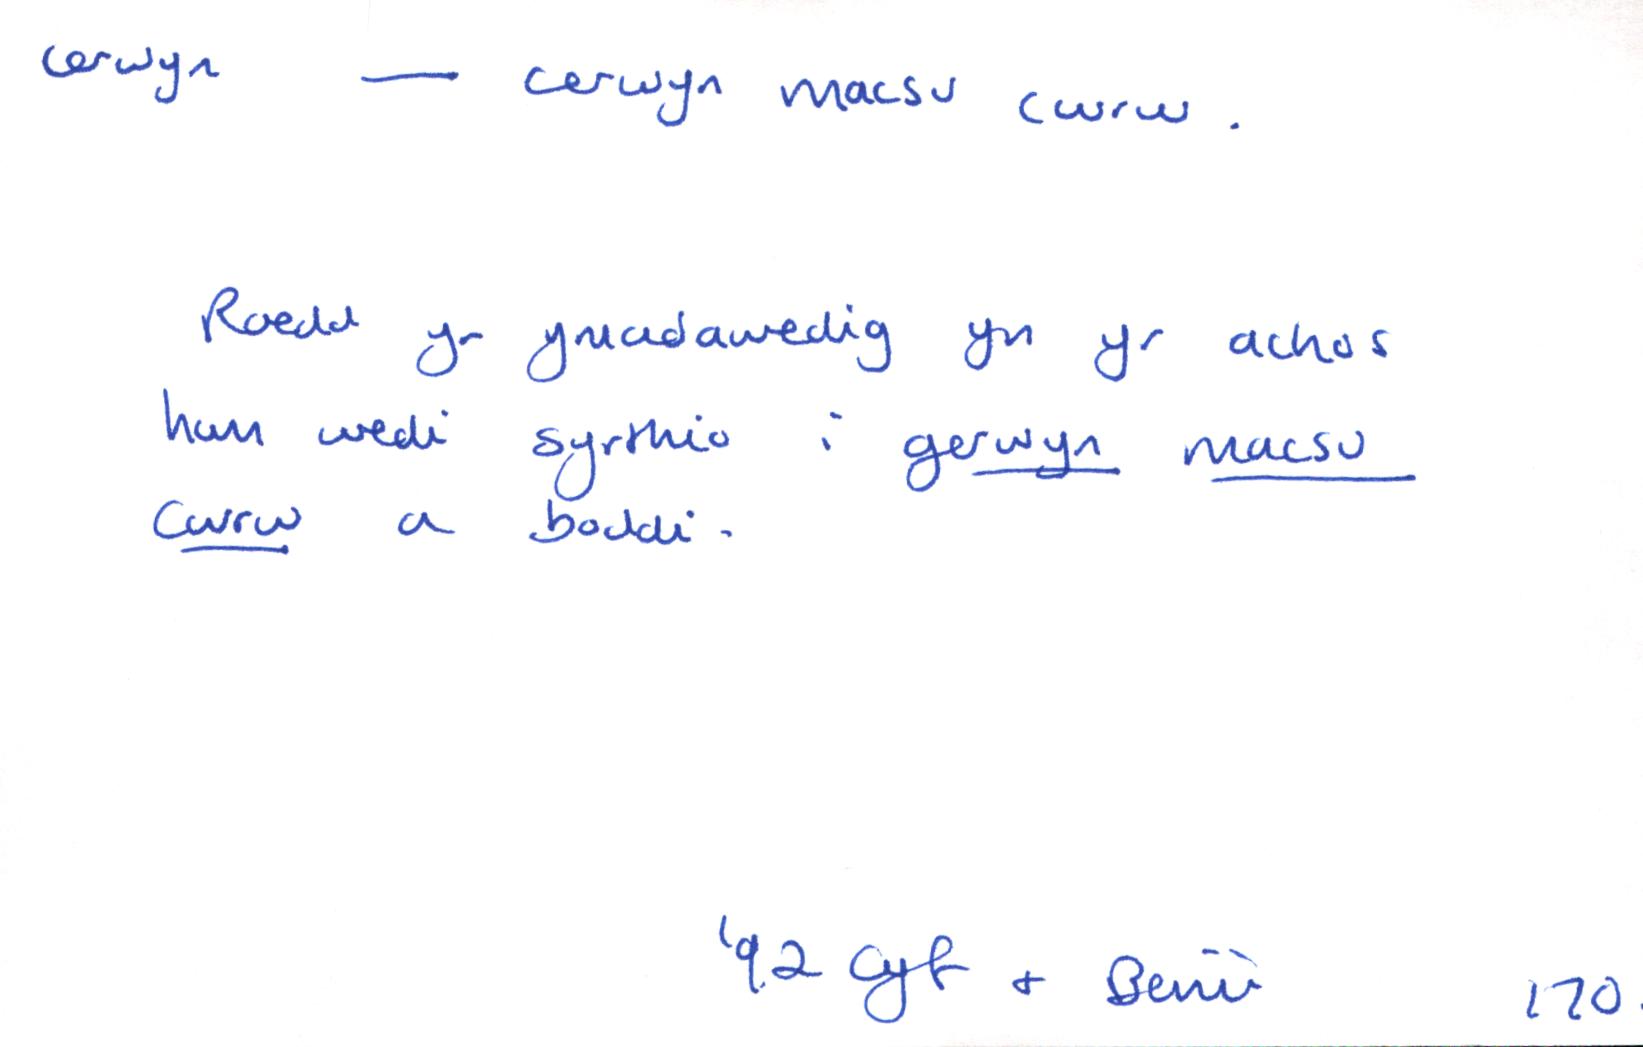 cerwyn — cerwyn macsu cwrw.
Roedd yr ymadawedig yn yr achos
hwn wedi syrthio i gerwyn macsu
cwrw a boddi.
'92 Cyf + Beirn 170.